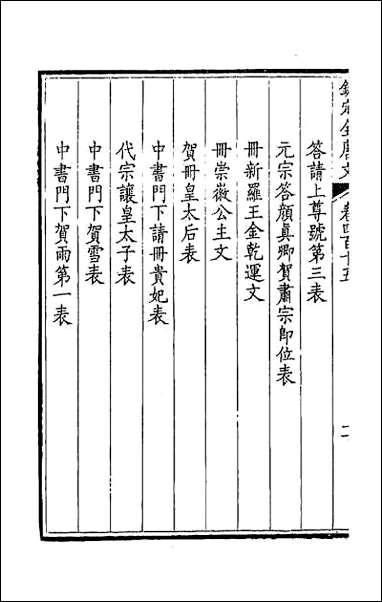 欽定全唐文
卷四百十五
二
答請上尊號第三表
元宗答顏真卿賀肅宗即位表
冊新羅王金乾運文
冊崇徽公主文
賀冊皇太后表
中書門下請冊貴妃表
代宗讓皇太子表
中書門下賀雪表
中書門下賀雨第一表